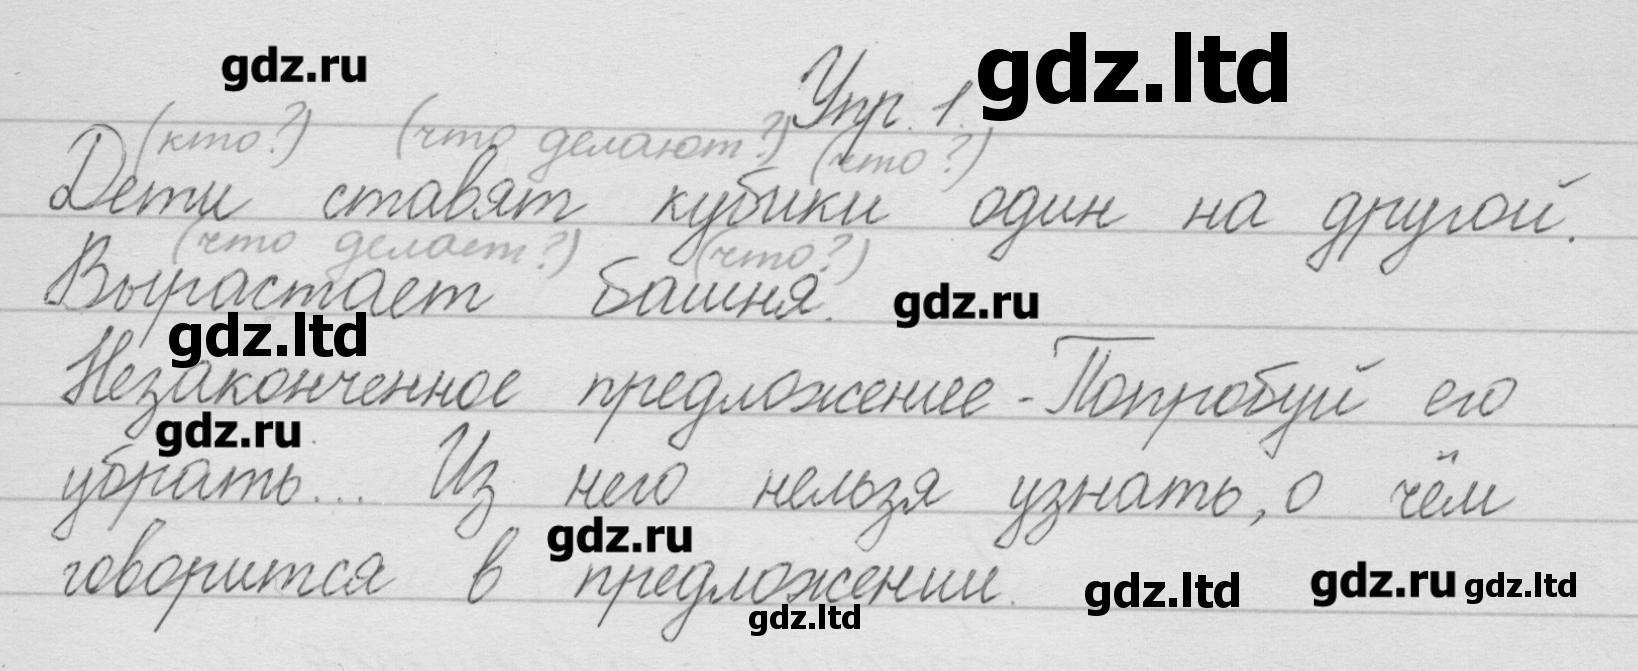 gdz.ru
Упр. 1. gdz.ltd
(кто?) (что делают?) (что?)
Дети ставят кубики один на другой.
(что делает?) (что?)
Вырастает башня. gdz.ru
gdz.ltd
Незаконченное предложение - Попробуй его
gdz.ru
убрать... Из него нельзя узнать, о чём
gdz.ru
говорится в предложении.
gdz.ltd gdz.ru gdz.ltd
gdz.ltd